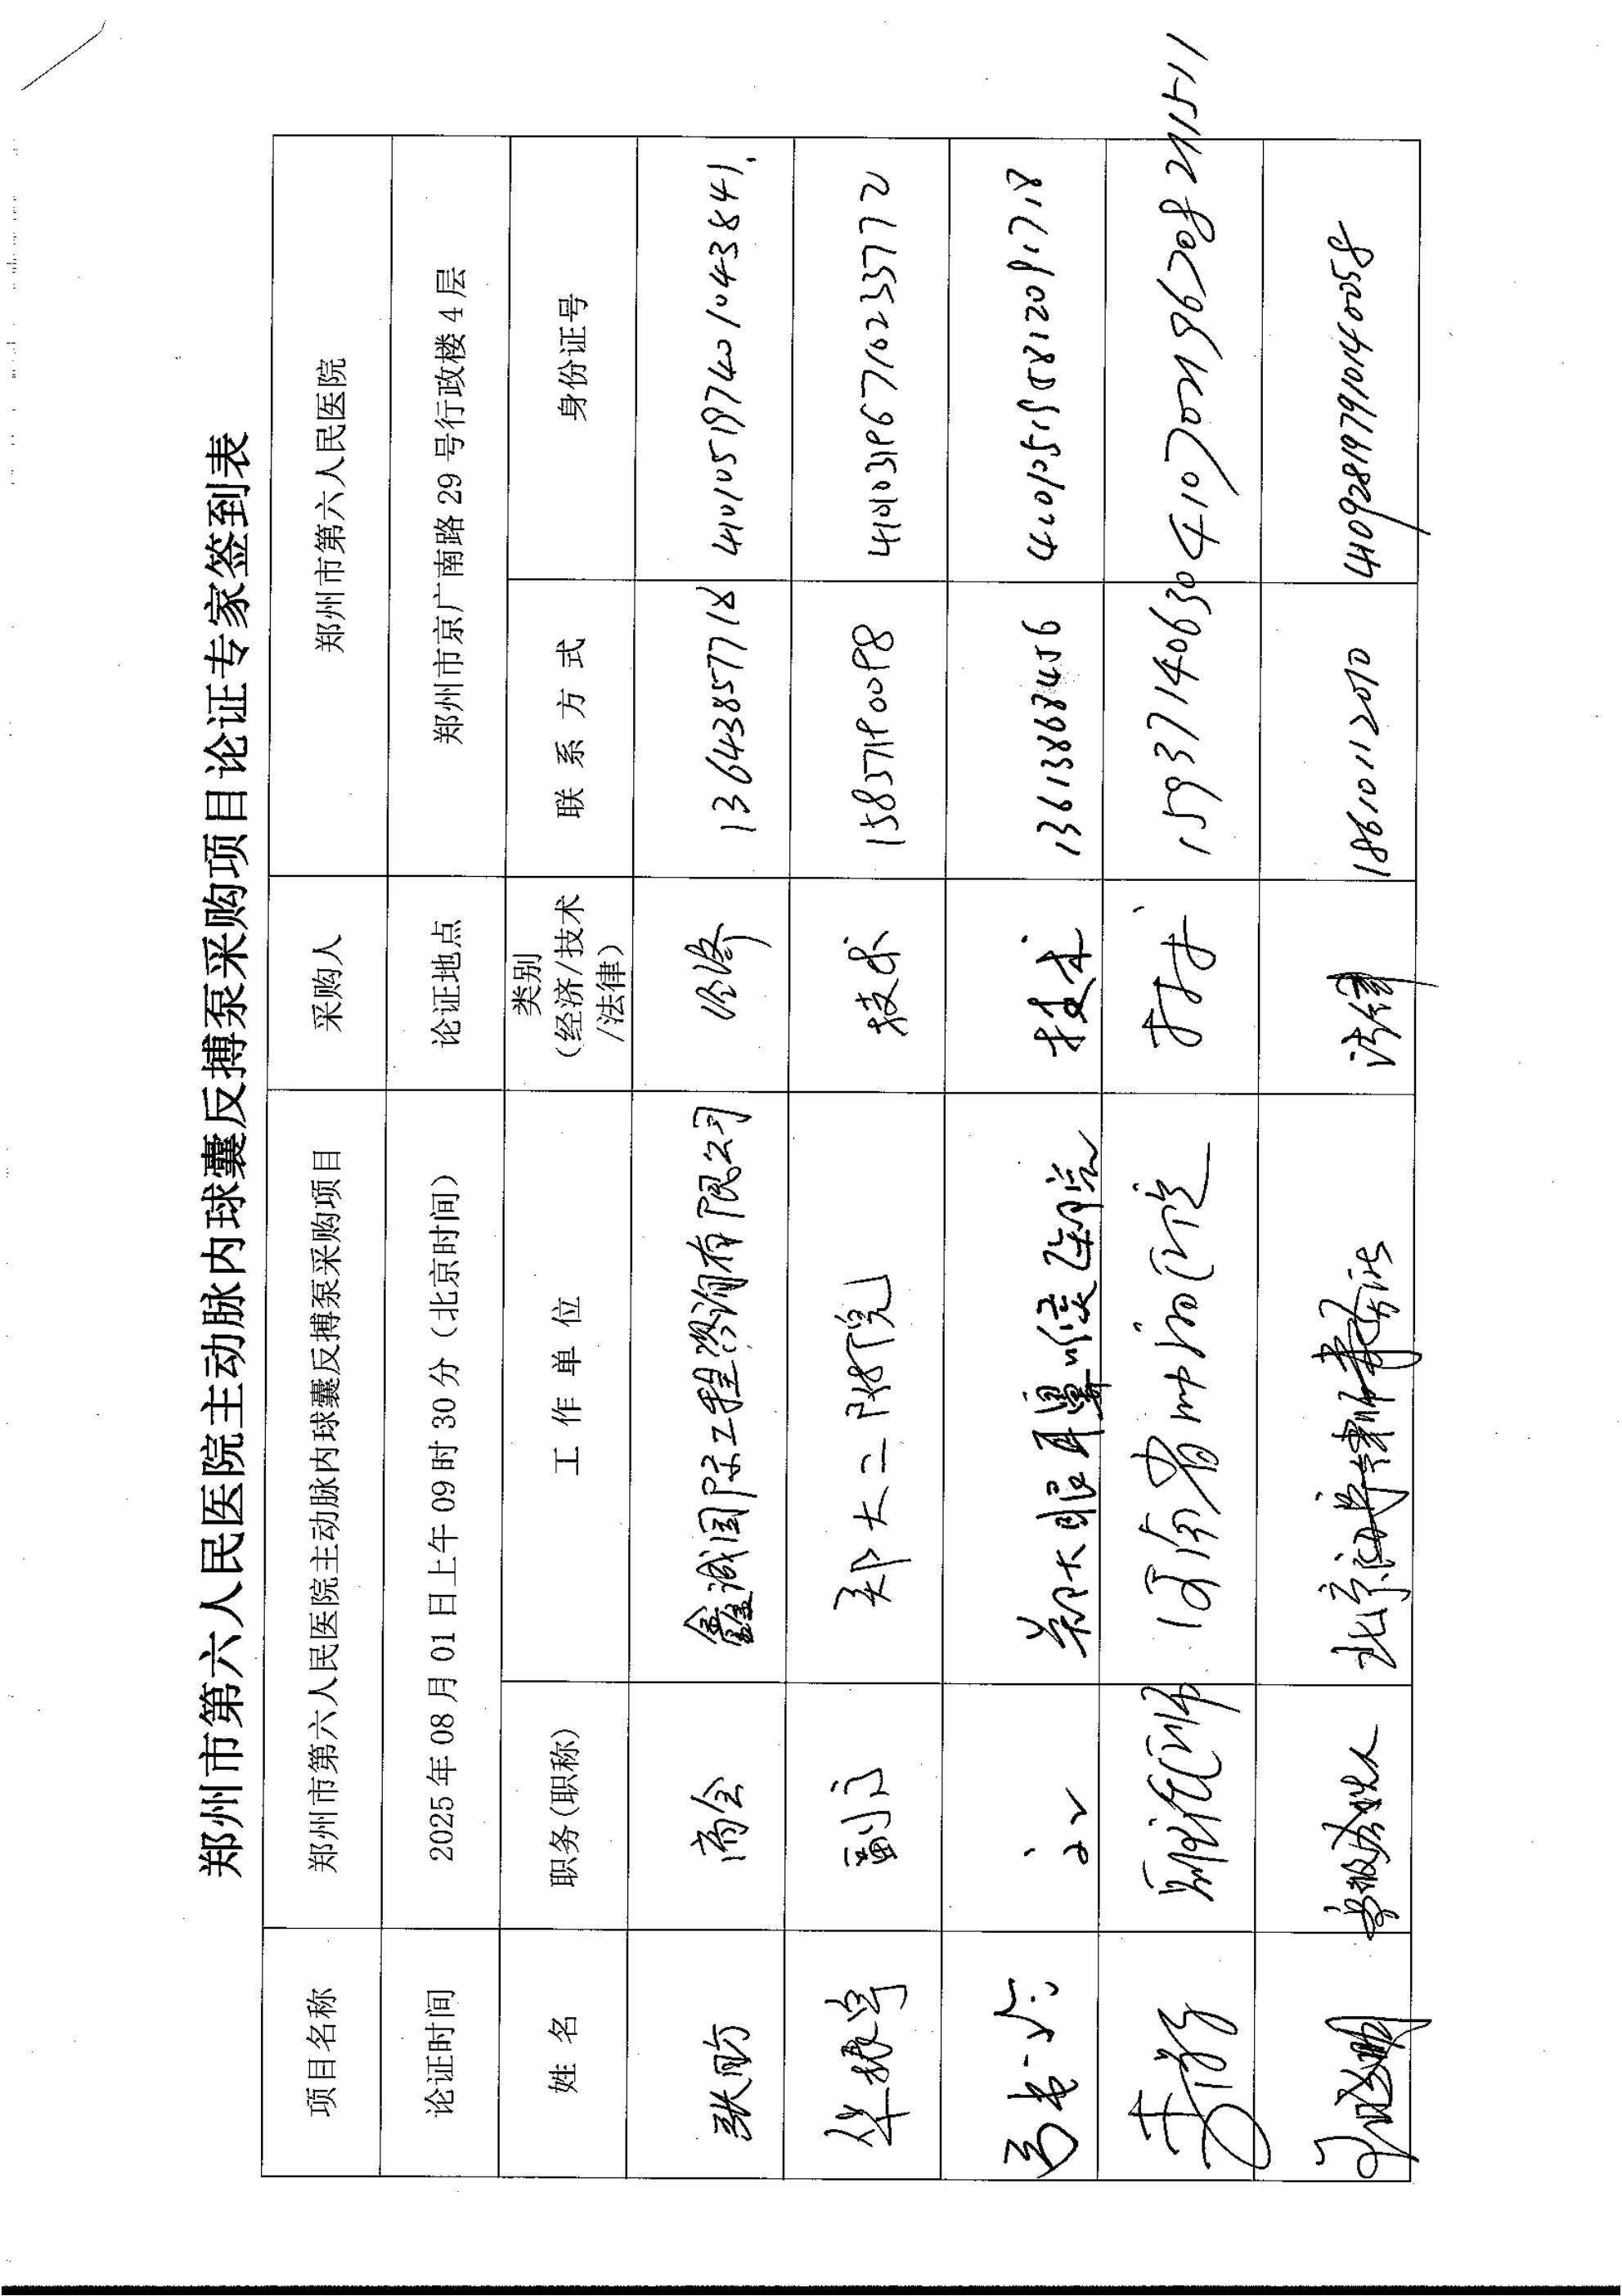 郑州市第六人民医院主动脉内球囊反搏泵采购项目论证专家签到表
项目名称 郑州市第六人民医院主动脉内球囊反搏泵采购项目 采购人 郑州市第六人民医院
论证时间 2025年08月01日上午09时30分（北京时间） 论证地点 郑州市京广南路29号行政楼4层
姓名 职务(职称) 工作单位 类别（经济/技术/法律） 联系方式 身份证号
高会 鑫诚国际工程咨询有限公司 经济 13643857718 410105197401043841
华振宇 副高 郑大二附院 技术 15837190098 410103196710233772
郑大眼耳鼻喉医院 技术 13613868456
河南省肿瘤医院 15937140630 410702196708211511
合伙人 北京 律师事务所 法律 18610112010 410928197910140058